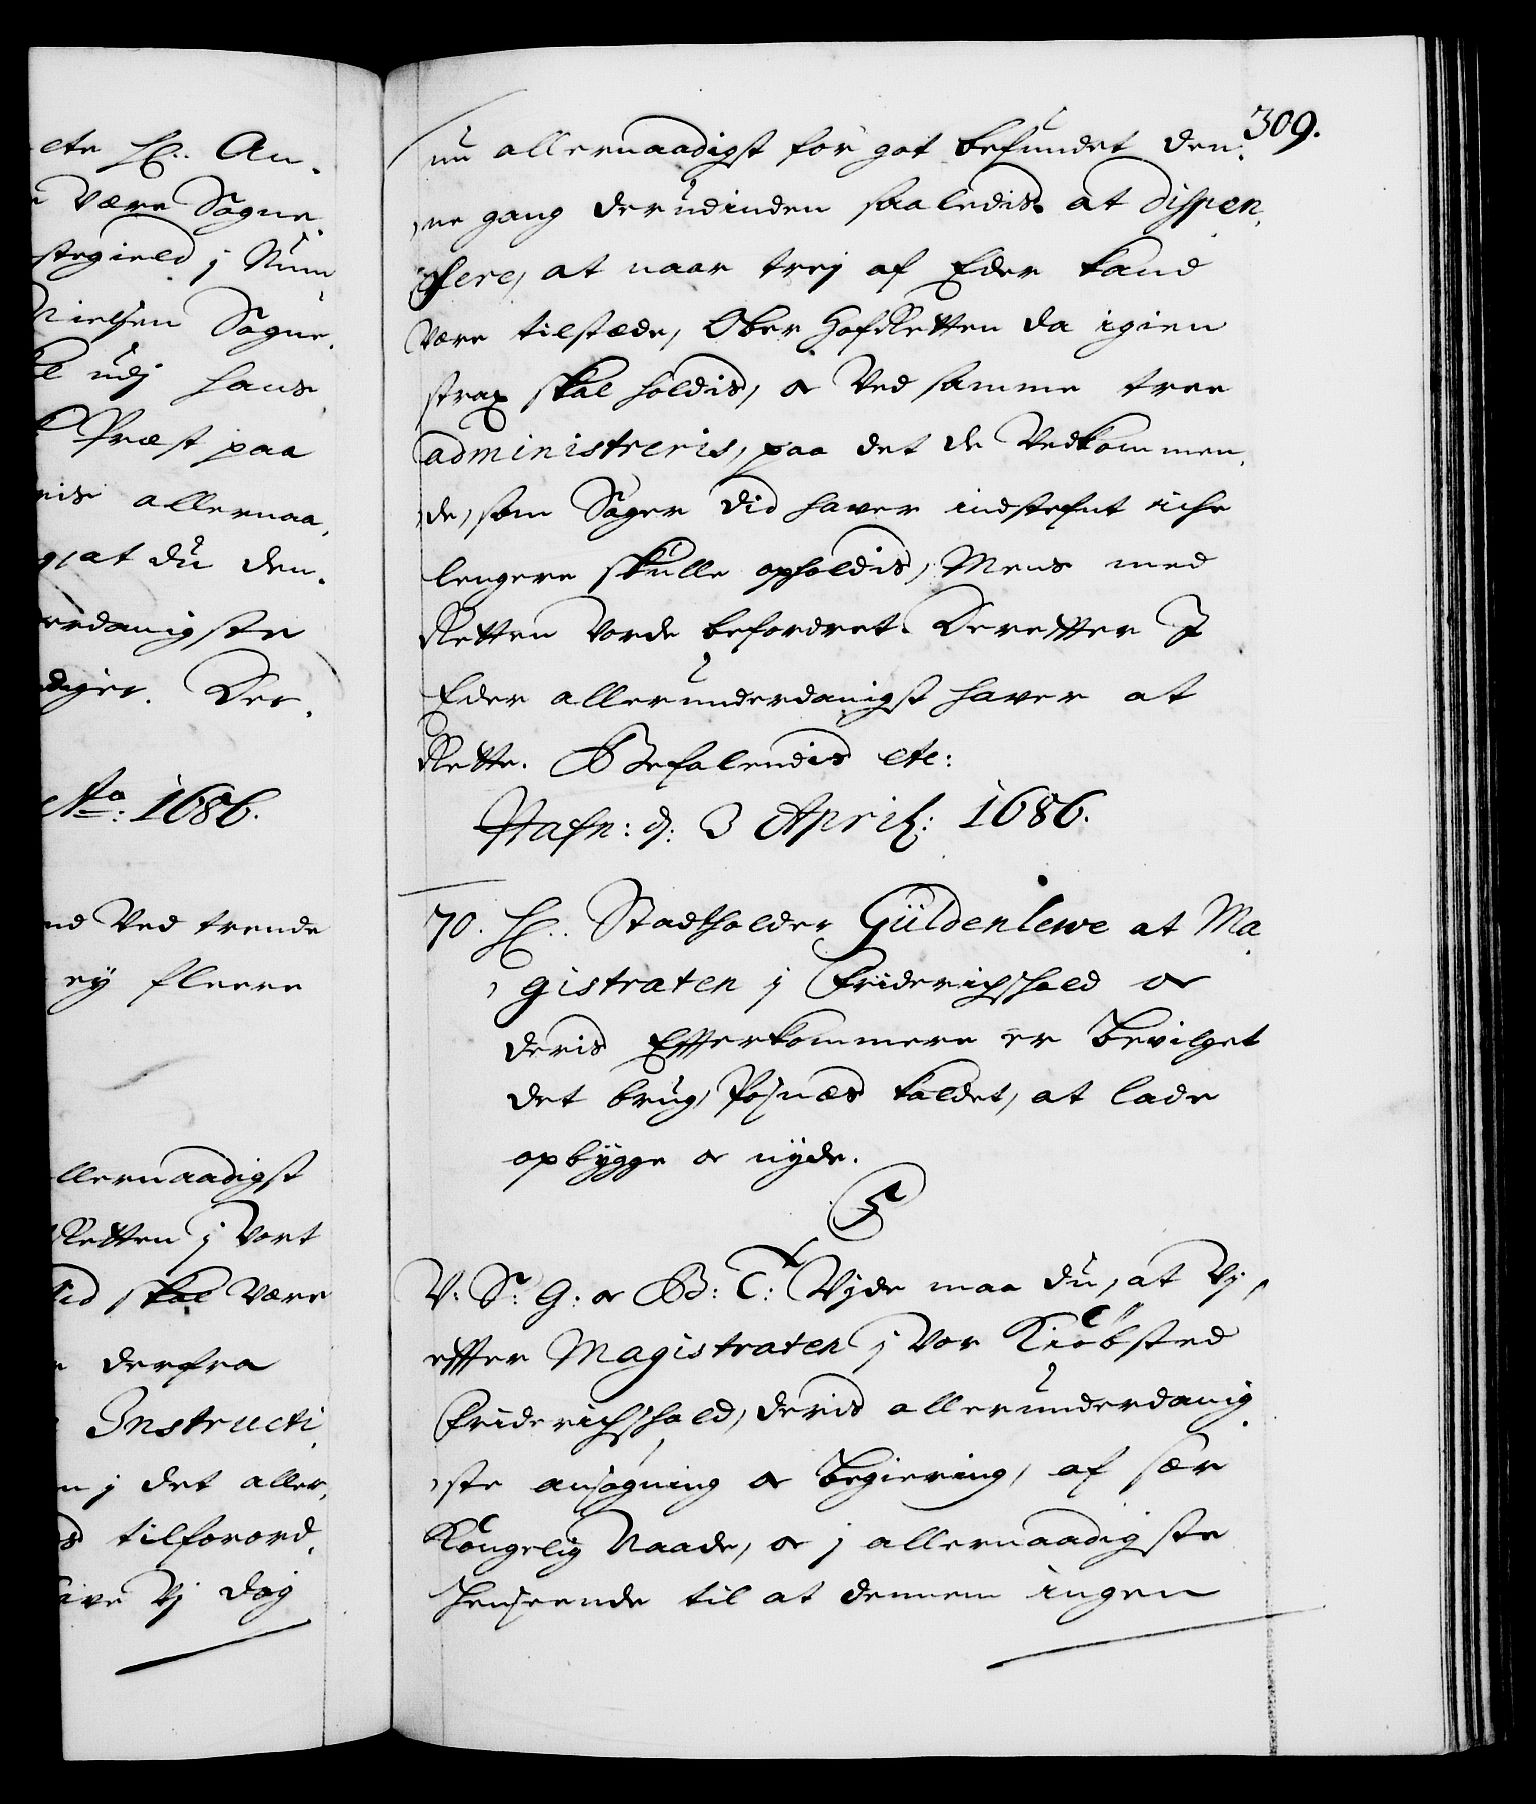 ete H: An-
Være Sogne-
stegield j Num
Nielsen Sogne-
udj hans
Præst paa
allernaa-
at du den-
erdanigste
diger. Der-
Ao: 1686.
nd Ved trende
ey fleere
llernaadigst
Retten j Vort
tid skal Være
derfra
Instructi-
n j det aller-
tilforord-
Vj dog
309.
nu allernaadigst for got befundet den-
ne gang derudinden saaledis at dispen-
sere, at naar trej af Eder kand
Være tilstæde, Ober HofRetten da igien
strax skal holdis, oc Ved samme tree
administreris, paa det de Vedkommen-
de, som Sager did haver indstefnt iche
lengere skulle opholdis, Mens med
Retten Vorde befordret. Derefter I
Eder allerunderdanigst haver at
Rette. Befalendis etc:
Hafn: d: 3 April: 1686.
70. H: Stadtholder Güldenlewe at Ma-
gistraten j Friderichshald oc
deris Efterkommere er bevilget
det brug, Posnæs kaldet, at lade
opbÿgge oc nÿde.
C5
V: S: G: oc B: T: Vide maa du, at Vj,
efter Magistraten j Vor Kiöbsted
Friderichshald, deris allerunderdanig-
ste ansøgning oc begiering, af sær
Kongelig Naade, oc j allernaadigste
henseende til at dennem ingen